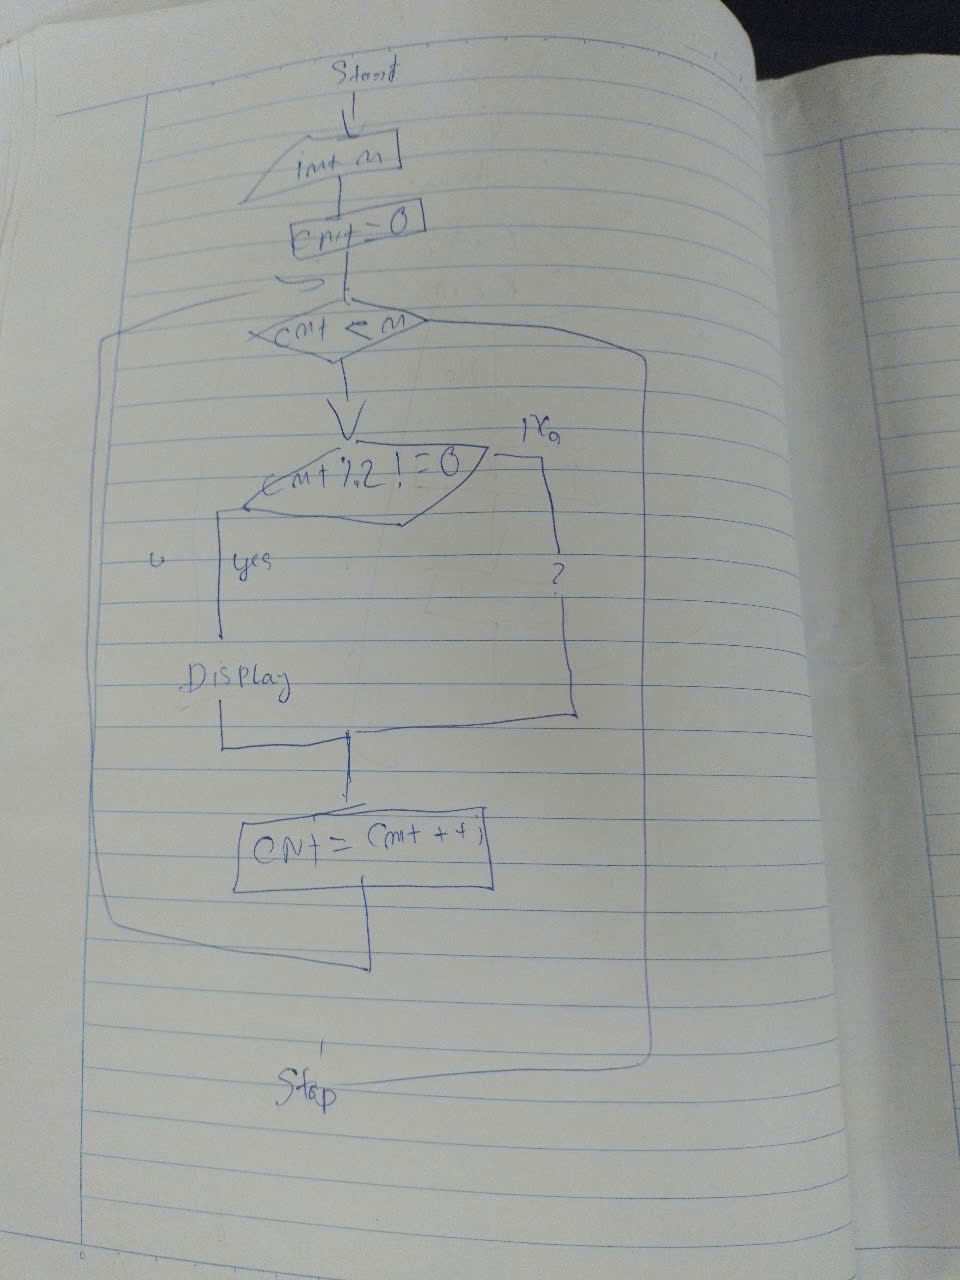 Start
int n
cnt = 0
cnt < n
cnt % 2 ! = 0
yes
?
Display
CNt = Cnt + + ;
Stop